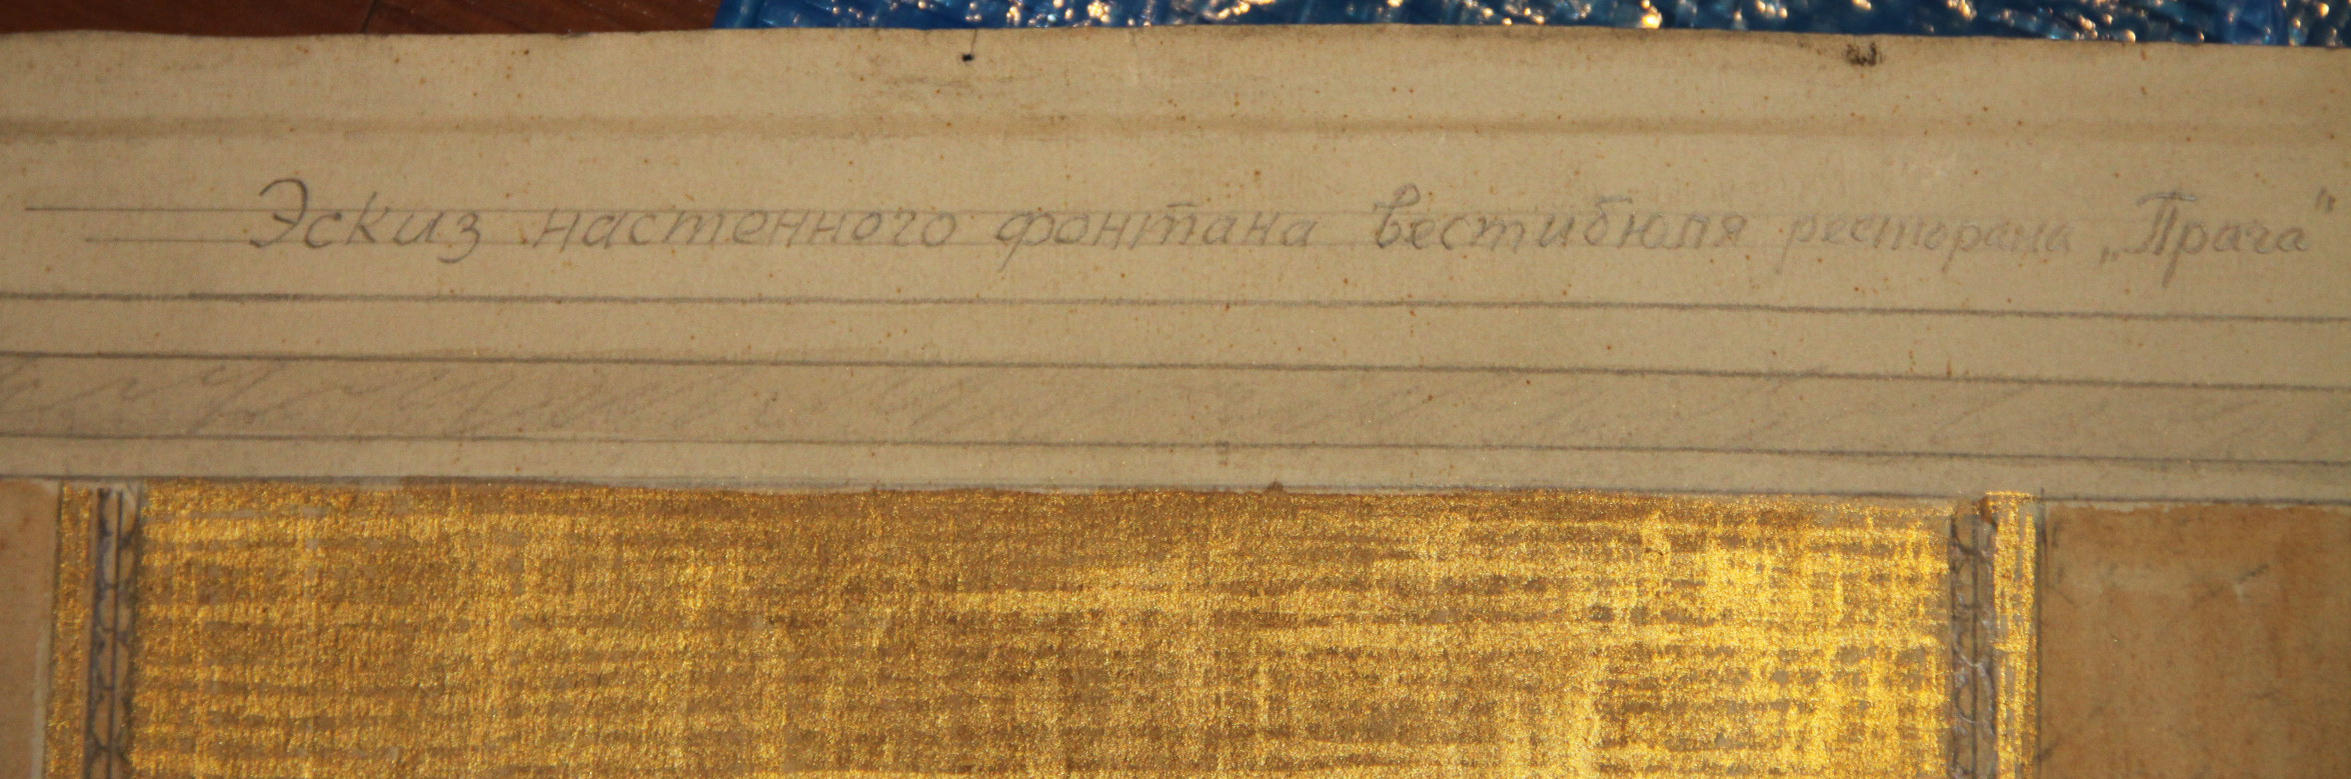 Эскиз настенного фонтана вестибюля ресторана „Прага"